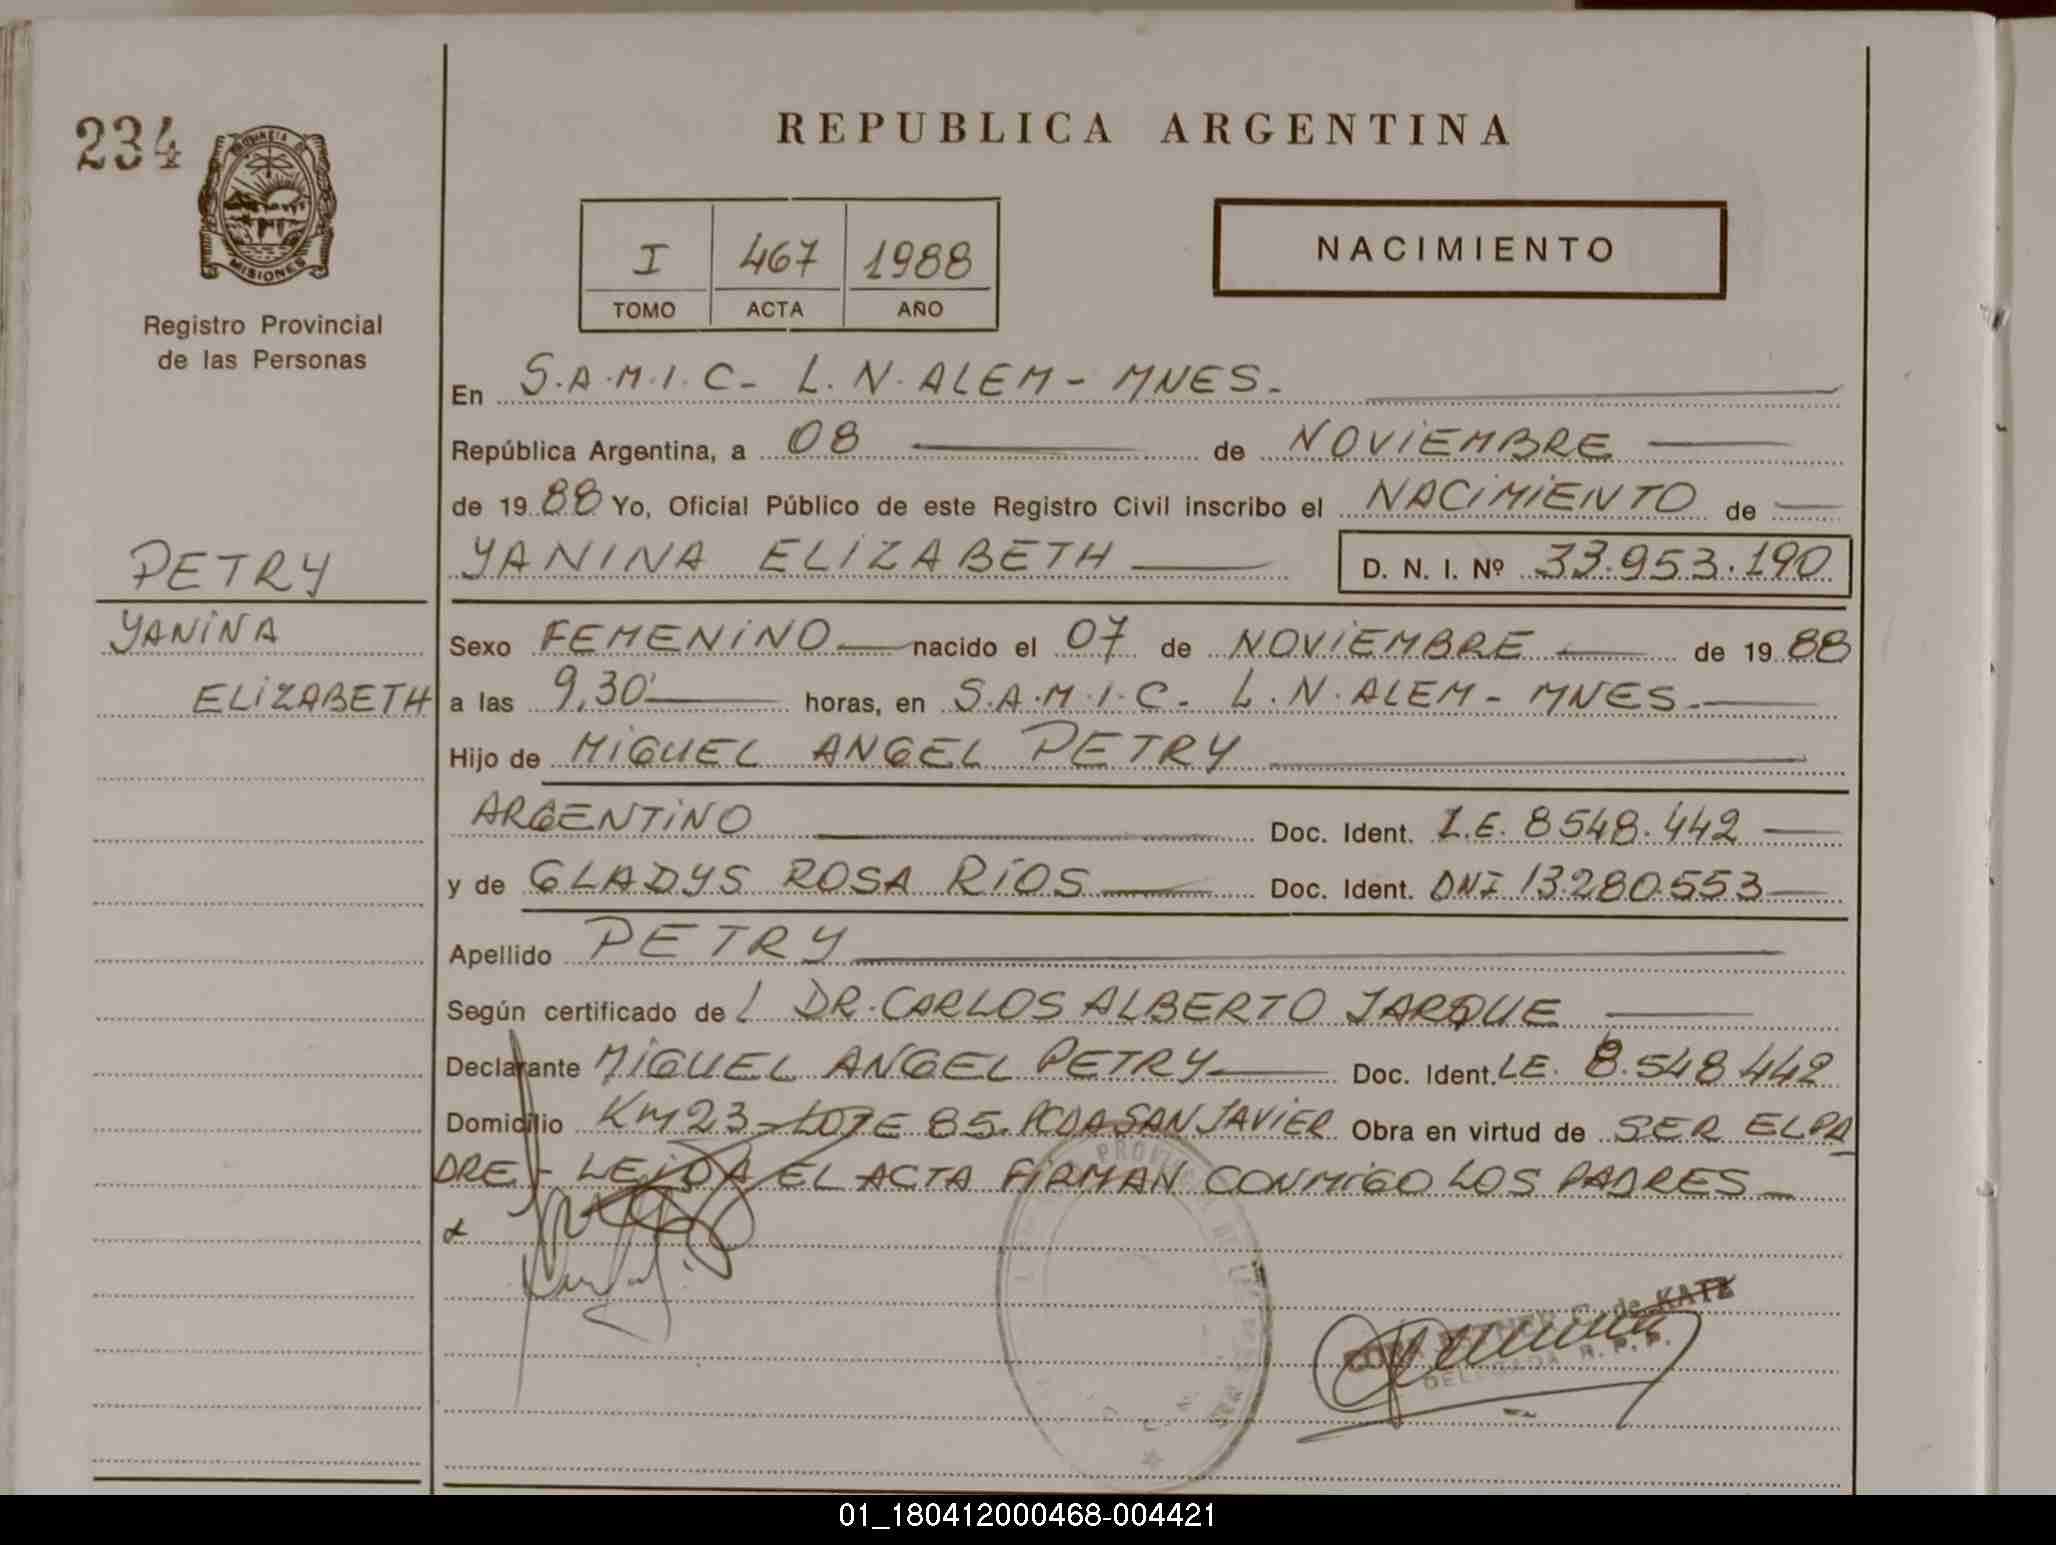 234
PROVINCIA DE
MISIONES
Registro Provincial
de las Personas
PETRY
YANINA
ELIZABETH
REPUBLICA ARGENTINA
I 467 1988
TOMO ACTA AÑO
NACIMIENTO
En S.A.M.I.C- L.N. ALEM - MNES.
República Argentina, a 08 de NOVIEMBRE
de 19 88 Yo, Oficial Público de este Registro Civil inscribo el NACIMIENTO de
YANINA ELIZABETH D. N. I. Nº 33.953.190
Sexo FEMENINO nacido el 07 de NOVIEMBRE de 19 88
a las 9,30' horas, en S.A.M.I.C- L.N. ALEM - MNES.
Hijo de MIGUEL ANGEL PETRY
ARGENTINO Doc. Ident. L.E. 8548.442
y de GLADYS ROSA RÍOS Doc. Ident. DNI 13.280.553
Apellido PETRY
Según certificado de L DR. CARLOS ALBERTO JARQUE
Declarante MIGUEL ANGEL PETRY Doc. Ident. LE. 8.548 442
Domicilio KM 23 - LOTE 85. PCDA SAN JAVIER Obra en virtud de SER EL PA
DRE - LEIDA EL ACTA FIRMAN CONMIGO LOS PADRES
C. de KATZ
DELEGADA R. P. P.
01_180412000468-004421